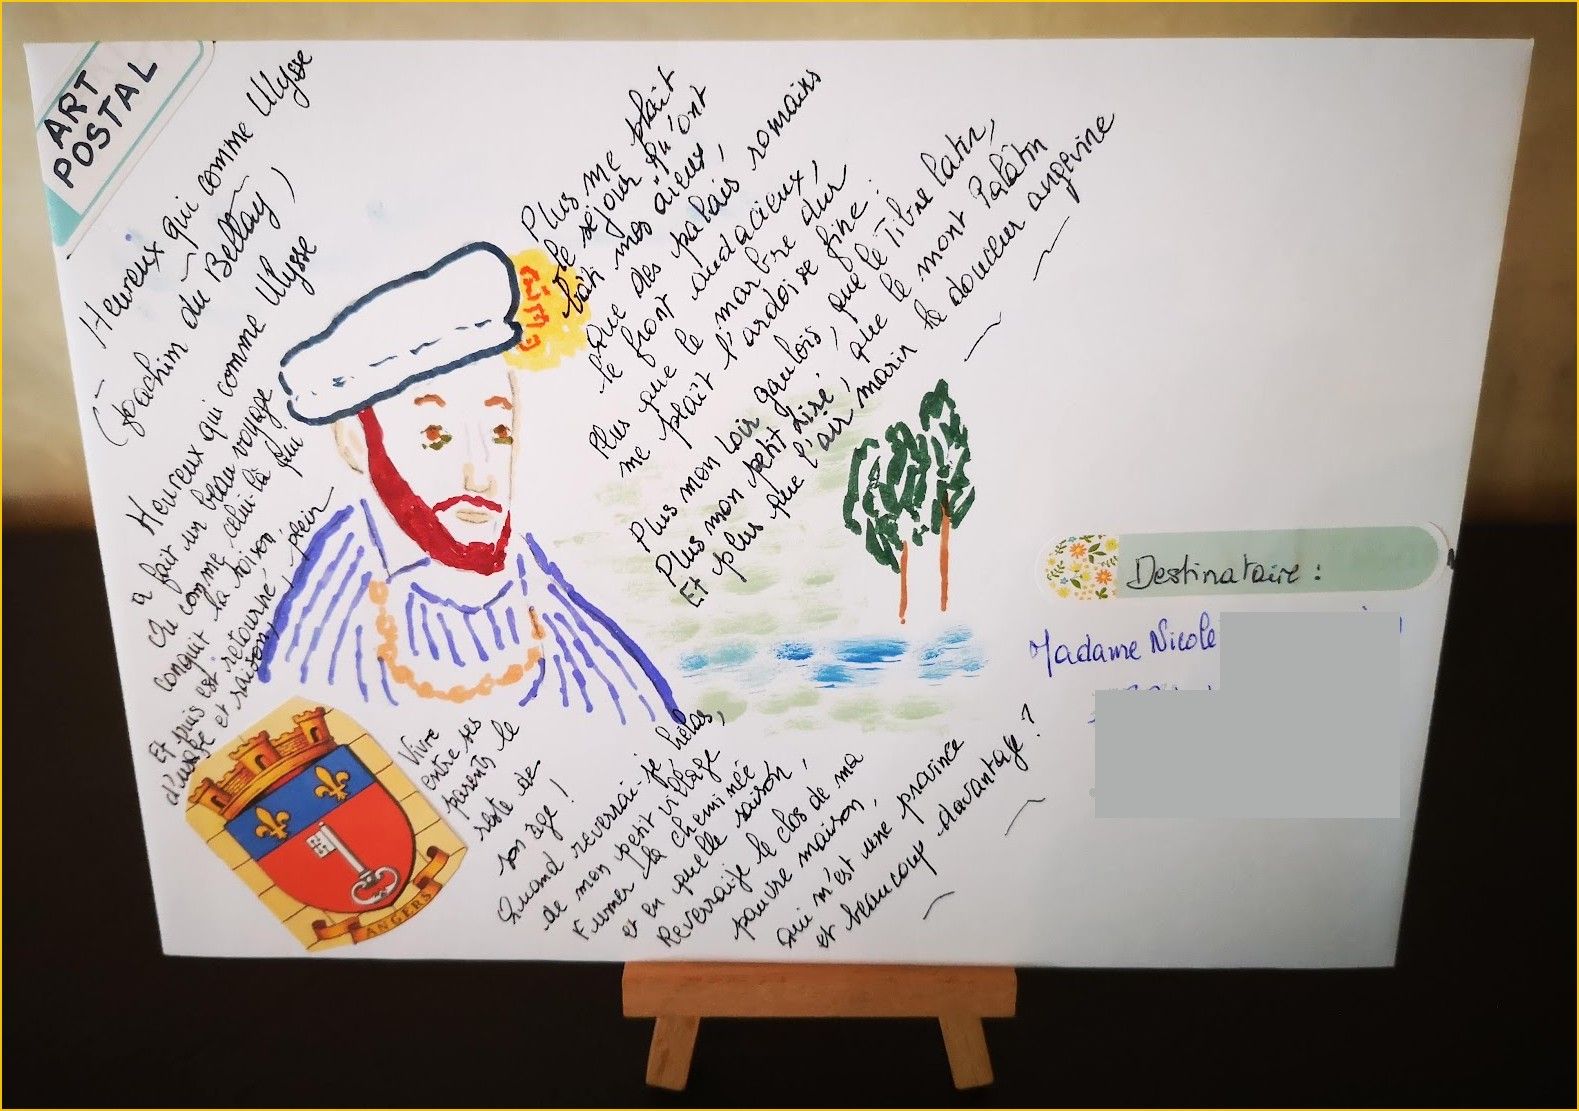 ART
POSTAL
Heureux qui comme Ulysse
(Joachim du Bellay)
Heureux qui comme Ulysse
a fait un beau voyage
Ou comme celui-là qui
conquit la toison,
Et puis est retourné, plein
d'usage et raison,
Vivre
entre ses
parents le
reste de
son âge !
Quand reverrai-je hélas,
de mon petit village
Fumer la cheminée
et en quelle saison,
Reverraije le clos de ma
pauvre maison,
Qui m'est une province
et beaucoup davantage ?
Plus me plaît
le séjour qu'ont
bâti mes aïeux,
Que des palais romains
le front audacieux,
Plus que le marbre dur
me plaît l'ardoise fine :
Plus mon Loir gaulois, que le Tibre latin,
Plus mon petit Liré, que le mont Palâtin
Et plus que l'air marin la douceur angevine
ANGERS
Destinataire :
Madame Nicole